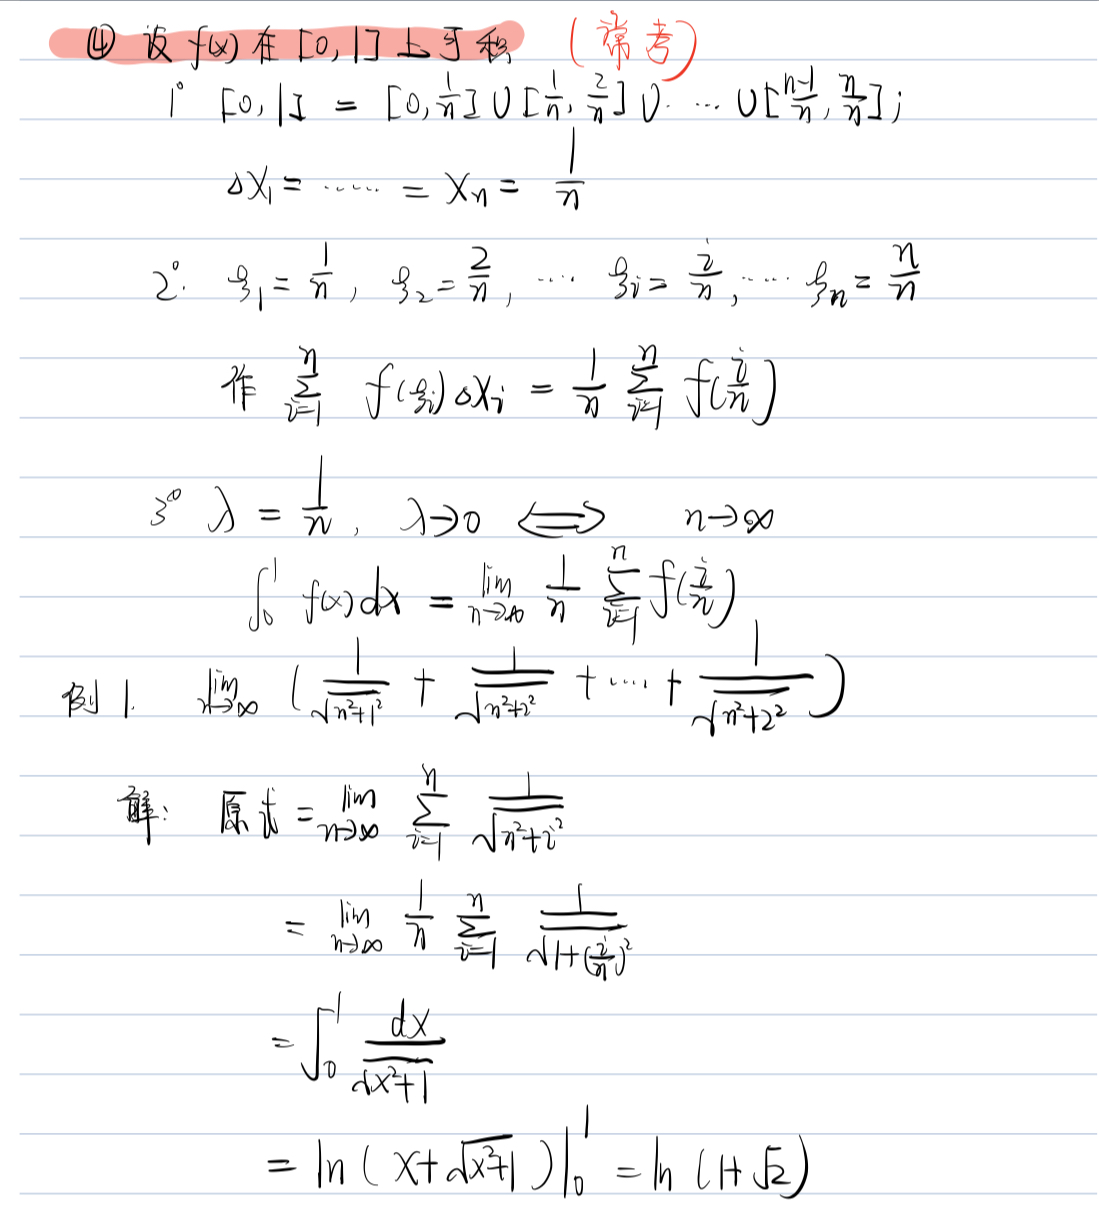 ④ 设 f(x) 在 [0,1] 上可积 (常考)
1° [0,1] = [0, 1/n] ∪ [1/n, 2/n] ∪ ⋯ ∪ [n-1/n, n/n];
Δx₁ = ⋯⋯ = xₙ = 1/n
2°. ξ₁ = 1/n, ξ₂ = 2/n, ⋯ ξᵢ = i/n, ⋯ ξₙ = n/n
作 ∑_{i=1}^{n} f(ξᵢ)Δxᵢ = 1/n ∑_{i=1}^{n} f(i/n)
3° λ = 1/n, λ→0 ⟺ n→∞
∫₀¹ f(x)dx = lim_{n→∞} 1/n ∑_{i=1}^{n} f(i/n)
例1. lim_{n→∞} (1/√(n²+1²) + 1/√(n²+2²) + ⋯ + 1/√(n²+2²))
解: 原式 = lim_{n→∞} ∑_{i=1}^{n} 1/√(n²+i²)
= lim_{n→∞} 1/n ∑_{i=1}^{n} 1/√(1+(i/n)²)
= ∫₀¹ dx/√(x²+1)
= ln(x+√(x²+1))|₀¹ = ln(1+√2)